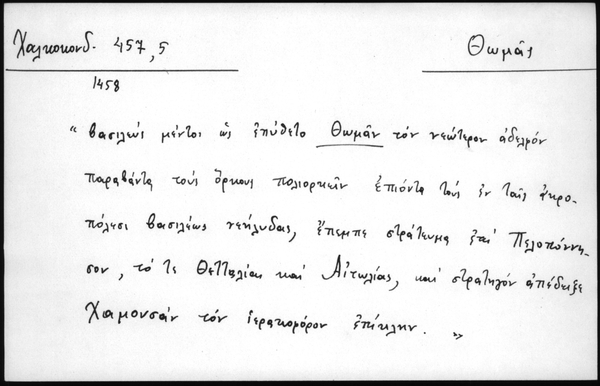 Χαλκοκονδ. 457,5
Θωμᾶς
1458
"Βασιλεὺς μέντοι ὡς ἐπύθετο Θωμᾶν τὸν νεώτερον ἀδελφὸν
παραβάντα τοὺς ὅρκους πολιορκεῖν ἐπιόντα τοὺς ἐν ταῖς ἀκρο-
πόλεσι βασιλέως νεήλυδας, ἔπεμπε στράτευμα ἐπὶ Πελοπόννη-
σον, τό τε Θετταλίας καὶ Αἰτωλίας, καὶ στρατηγὸν ἀπέδειξε
Χαμουσᾶν τὸν ἱερακοφόρον ἐπίκλην."